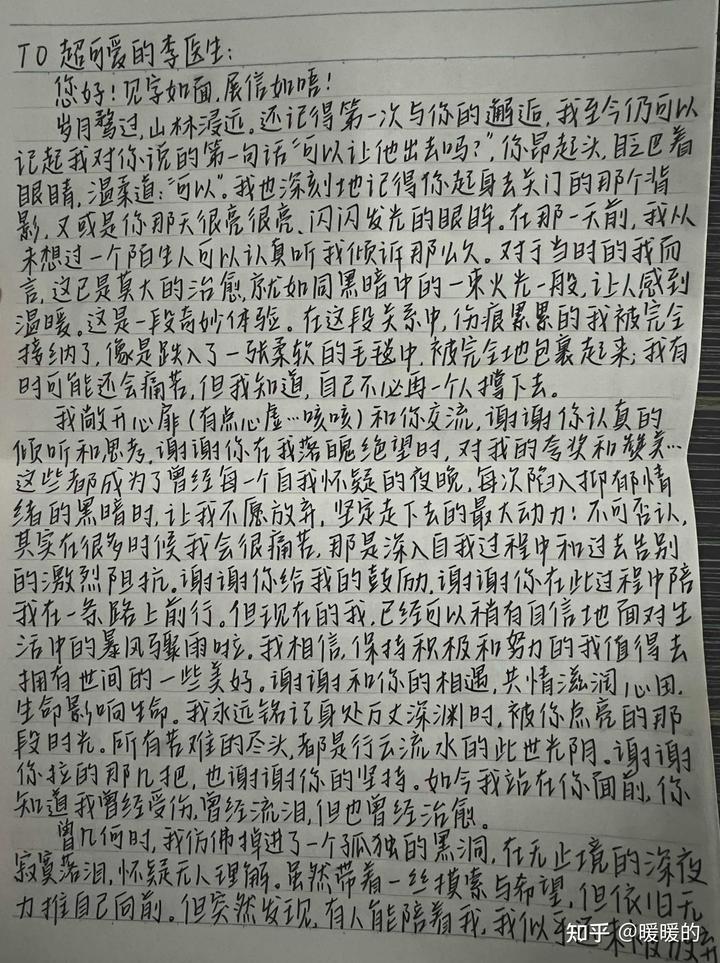 TO 超可爱的李医生:
您好!见字如面,展信如唔!
岁月骛过,山林浸远。还记得第一次与你的邂逅,我至今仍可以
记起我对你说的第一句话“可以让他出去吗?”,你昂起头,眨巴着
眼睛,温柔道:“可以”。我也深刻地记得你起身去关门的那个背
影,又或是你那天很亮很亮、闪闪发光的眼眸。在那一天前,我从
未想过一个陌生人可以认真听我倾诉那么久。对于当时的我而
言,这已是莫大的治愈,就如同黑暗中的一束火光一般,让人感到
温暖。这是一段奇妙体验。在这段关系中,伤痕累累的我被完全
接纳了,像是跌入了一张柔软的毛毯中,被完全地包裹起来;我有
时可能还会痛苦,但我知道,自己不必再一个人撑下去。
我敞开心扉(有点心虚…咳咳)和你交流,谢谢你认真的
倾听和思考,谢谢你在我落魄绝望时,对我的夸奖和赞美…
这些都成为了曾经每一个自我怀疑的夜晚,每次陷入抑郁情
绪的黑暗时,让我不愿放弃,坚定走下去的最大动力!不可否认,
其实在很多时候我会很痛苦,那是深入自我过程中和过去告别
的激烈阻抗。谢谢你给我的鼓励,谢谢你在此过程中陪
我在一条路上前行。但现在的我,已经可以稍有自信地面对生
活中的暴风骤雨啦。我相信,保持积极和努力的我值得去
拥有世间的一些美好。谢谢和你的相遇,共情滋润心田,
生命影响生命。我永远铭记身处万丈深渊时,被你点亮的那
段时光。所有苦难的尽头,都是行云流水的此世光阴。谢谢
你拉的那几把,也谢谢你的坚持。如今我站在你面前,你
知道我曾经受伤,曾经流泪,但也曾经治愈。
曾几何时,我仿佛掉进了一个孤独的黑洞,在无止境的深夜
寂寞落泪,怀疑无人理解。虽然带着一丝摸索与希望,但依旧无
力推自己向前。但突然发现,有人能陪着我,我似乎
知乎 @暖暖的